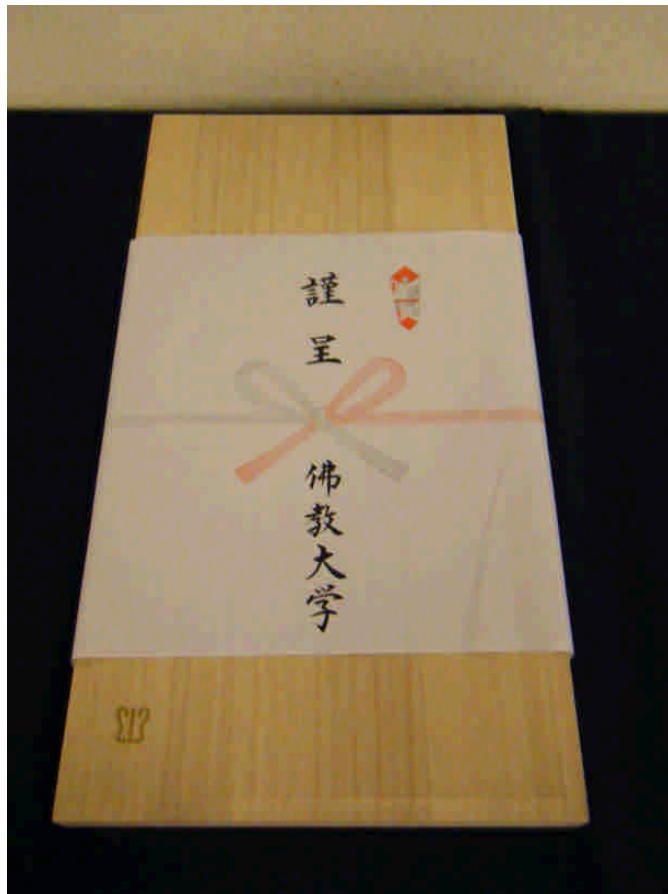 謹呈
佛教大学